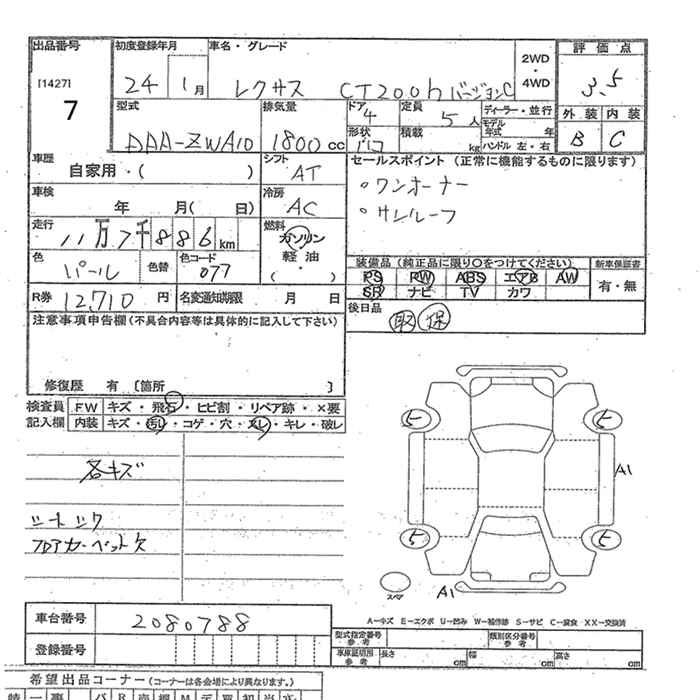 出品番号 初度登録年月 車名・グレード 評価点
[1427] 24 1月 レクサス CT200h バージョンC 2WD・4WD 3.5
7
型式 排気量 ドア 4 定員 5人 ディーラー・並行 外装 内装
DAA-ZWA10 1800cc 形状 積載 kg モデル年式 年 ハンドル 左・右 B C
車歴 自家用・( ) シフト AT セールスポイント (正常に機能するものに限ります)
車検 年 月( 日) 冷房 AC 。ワンオーナー
。サンルーフ
走行 11万7千886km 燃料 ガソリン 軽油・( )
色 パール 色替 色コード 077 装備品 (純正品に限り○をつけてください) 新車保証書
PS PW ABS エアB AW 有・無
R券 12,710円 名変通知期限 月 日 SR ナビ TV カワ
注意事項申告欄(不具合内容等は具体的に記入して下さい) 後日品 取 保
修復歴 有 〔箇所 〕
検査員 FW キズ・飛石・ヒビ割・リペア跡・×要
記入欄 内装 キズ・汚レ・コゲ・穴・スレ・キレ・破レ
5 5
各キズ A1
シートシワ
フロアカーペット欠 5 5
スペア A1
A-キズ E-エクボ U-凹み W-補修跡 S-サビ C-腐食 XX-交換済
車台番号 2080788
登録番号 型式指定番号 参考 類別区分番号 参考
車庫証明用 参考 長さ cm 幅 cm 高さ cm
希望出品コーナー (コーナーは各会場により異なります。)